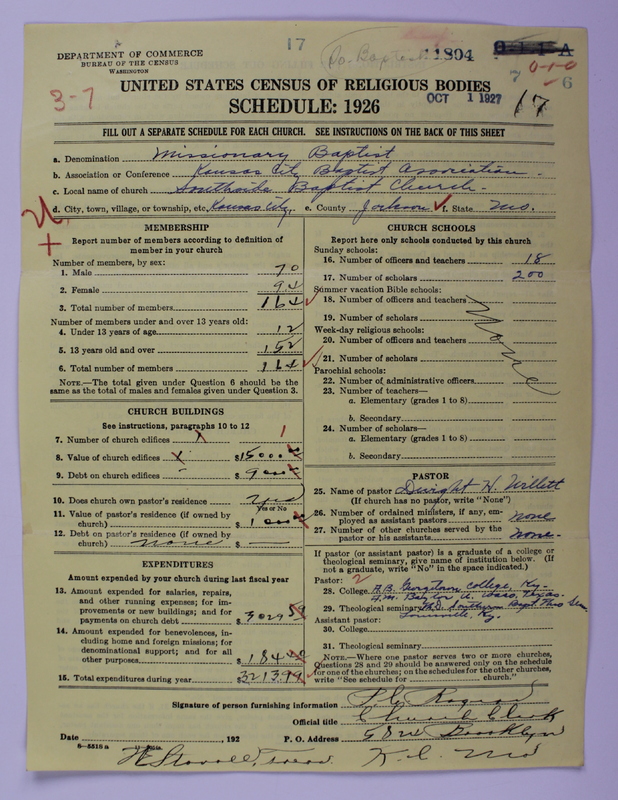 17
So. Baptist 11894
DEPARTMENT OF COMMERCE
BUREAU OF THE CENSUS
WASHINGTON
7 0-1-0 6
3-7
UNITED STATES CENSUS OF RELIGIOUS BODIES
SCHEDULE: 1926
OCT 1 1927
17
FILL OUT A SEPARATE SCHEDULE FOR EACH CHURCH. SEE INSTRUCTIONS ON THE BACK OF THIS SHEET
a. Denomination Missionary Baptist
b. Association or Conference Kansas City Baptist Association.
c. Local name of church Southside Baptist Church.
d. City, town, village, or township, etc. Kansas City, e. County Jackson f. State Mo.
MEMBERSHIP
Report number of members according to definition of
member in your church
Number of members, by sex:
1. Male 70
2. Female 94
3. Total number of members 164
Number of members under and over 13 years old:
4. Under 13 years of age 12
5. 13 years old and over 152
6. Total number of members 164
NOTE.—The total given under Question 6 should be the
same as the total of males and females given under Question 3.
CHURCH BUILDINGS
See instructions, paragraphs 10 to 12
7. Number of church edifices x 1
8. Value of church edifices x $15000
9. Debt on church edifices $9000
10. Does church own pastor's residence Yes
Yes or No
11. Value of pastor's residence (if owned by
church) $1000
12. Debt on pastor's residence (if owned by
church) none $
EXPENDITURES
Amount expended by your church during last fiscal year
13. Amount expended for salaries, repairs,
and other running expenses; for im-
provements or new buildings; and for
payments on church debt $3029 59
14. Amount expended for benevolences, in-
cluding home and foreign missions; for
denominational support; and for all
other purposes $184 40
15. Total expenditures during year $3213 99
CHURCH SCHOOLS
Report here only schools conducted by this church
Sunday schools:
16. Number of officers and teachers 18
17. Number of scholars 200
Summer vacation Bible schools:
18. Number of officers and teachers
19. Number of scholars
Week-day religious schools:
20. Number of officers and teachers
21. Number of scholars
None
Parochial schools:
22. Number of administrative officers
23. Number of teachers—
a. Elementary (grades 1 to 8)
b. Secondary
24. Number of scholars—
a. Elementary (grades 1 to 8)
b. Secondary
PASTOR
25. Name of pastor Dwight H. Willett
(If church has no pastor, write "None")
26. Number of ordained ministers, if any, em-
ployed as assistant pastors none
27. Number of other churches served by the
pastor or his assistants none.
If pastor (or assistant pastor) is a graduate of a college or
theological seminary, give name of institution below. (If
not a graduate, write "No" in the space indicated.)
Pastor: 2
28. College A.B. Georgetown College, Ky.
Baylor U. Waco, Texas.
29. Theological seminary Th.D. Southern Bapt Theo Sem
Louisville, Ky.
Assistant pastor:
30. College
31. Theological seminary
NOTE.—Where one pastor serves two or more churches,
Questions 28 and 29 should be answered only on the schedule
for one of the churches; on the schedules for the other churches,
write "See schedule for church."
Signature of person furnishing information
Official title Church Clerk
Date , 192 P. O. Address Brooklyn
8—5518 a K. C. Mo